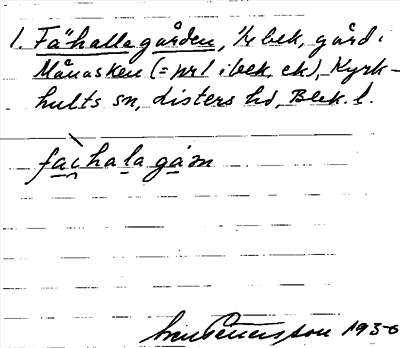 1. Fähallagården, 1/4 bek, gård i
Månasken (= nr 1 i bek. ek), Kyrk-
hults sn, Listers hd, Blek. l.
fàihala gåṛn
1930